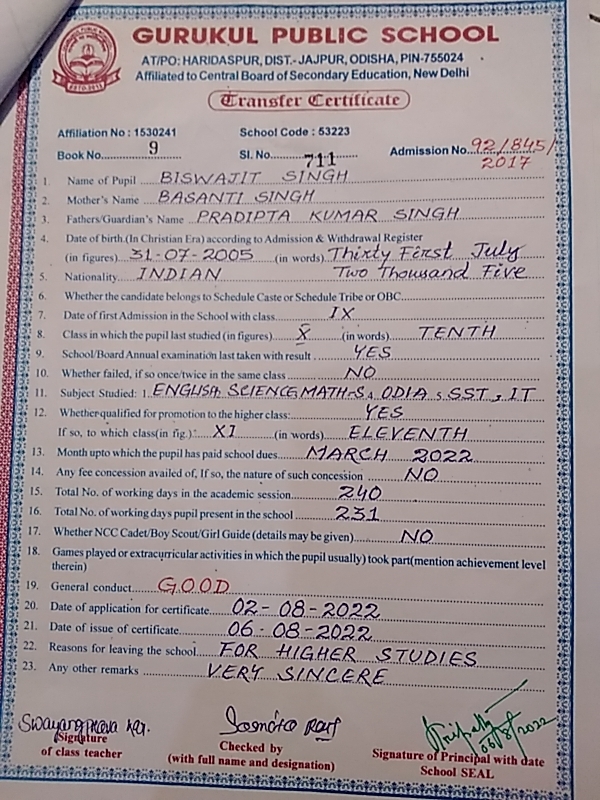 GURUKUL PUBLIC SCHOOL
AT/PO: HARIDASPUR, DIST.- JAJPUR, ODISHA, PIN-755024
Affiliated to Central Board of Secondary Education, New Delhi
Transfer Certificate
Affiliation No : 1530241 School Code : 53223
Book No. 9 Sl. No. 711 Admission No. 92/845/
2017
1. Name of Pupil BISWAJIT SINGH
2. Mother's Name BASANTI SINGH
3. Fathers/Guardian's Name PRADIPTA KUMAR SINGH
4. Date of birth (In Christian Era) according to Admission & Withdrawal Register
(in figures) 31-07-2005 (in words) Thirty First July
5. Nationality INDIAN Two Thousand Five
6. Whether the candidate belongs to Schedule Caste or Schedule Tribe or OBC
7. Date of first Admission in the School with class IX
8. Class in which the pupil last studied (in figures) X (in words) TENTH
9. School/Board Annual examination last taken with result YES
10. Whether failed, if so once/twice in the same class NO
11. Subject Studied: 1. ENGLISH, SCIENCE, MATH-S, ODIA, SST, IT
12. Whether qualified for promotion to the higher class: YES
If so, to which class(in fig.): XI (in words) ELEVENTH
13. Month upto which the pupil has paid school dues MARCH 2022
14. Any fee concession availed of, If so, the nature of such concession NO
15. Total No. of working days in the academic session 240
16. Total No. of working days pupil present in the school 231
17. Whether NCC Cadet/Boy Scout/Girl Guide (details may be given) NO
18. Games played or extracurricular activities in which the pupil usually) took part(mention achievement level
therein)
19. General conduct GOOD
20. Date of application for certificate 02-08-2022
21. Date of issue of certificate 06-08-2022
22. Reasons for leaving the school FOR HIGHER STUDIES
23. Any other remarks VERY SINCERE
06/8/2022
Signature
of class teacher
Checked by
(with full name and designation)
Signature of Principal with date
School SEAL